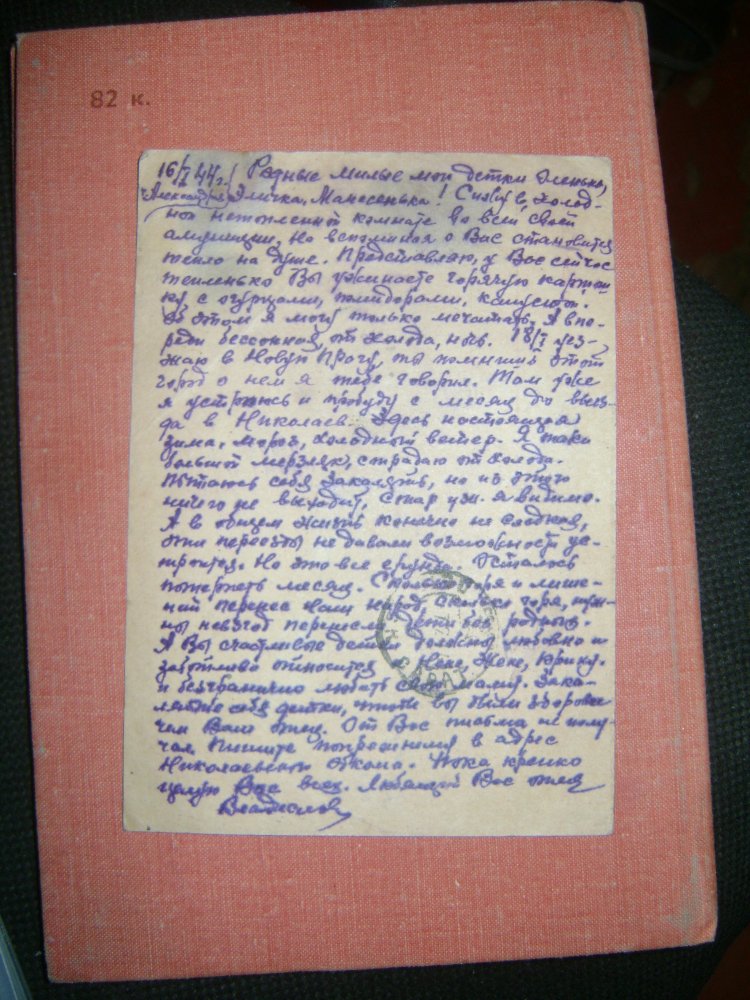 82 к.
16/I 44 г. Родные милые мои детки Оленька,
Александра, Эличка, Манесенька! Сижу в холод-
ной нетопленной комнате во всей своей
амуниции, но вспоминая о Вас становится
тепло на душе. Представляю, у Вас сейчас
тепленько Вы ужинаете горячую картош
ку с огурцами, помидорами, капустой.
Об этом я могу только мечтать. А впе-
реди бессонная, от холода, ночь. 18/I уез-
жаю в Новую Прагу, ты помнишь этот
город о нем я тебе говорил. Там уже
я устроюсь и пробуду с месяц до выез-
да в Николаев. Здесь настоящая
зима, мороз, холодный ветер. Я такой
большой мерзляк, страдаю от холода.
Пытаюсь себя закалять, но из этого
ничего не выходит, стар уж я видимо.
А в общем жизнь конечно не сладкая,
эти переезды не давали возможности ус-
троится. Но это все ерунда. Осталось
потерпеть месяц. Сколько горя и лише-
ний перенес наш народ, сколько горя, нуж-
ны невзгод перенесли Ваши родных.
А Вы счастливые дети должны любовно и
заботливо относится к Неле, Жене, Юрику.
и безгранично любить свою маму. Зака-
ляйте себя детки, чтоб вы были здоровее
чем Ваш отец. От Вас письма не полу-
чал пишите попрежнему в адрес
Николаевского обкома. Пока крепко
целую Вас всех. Любящий Вас отец